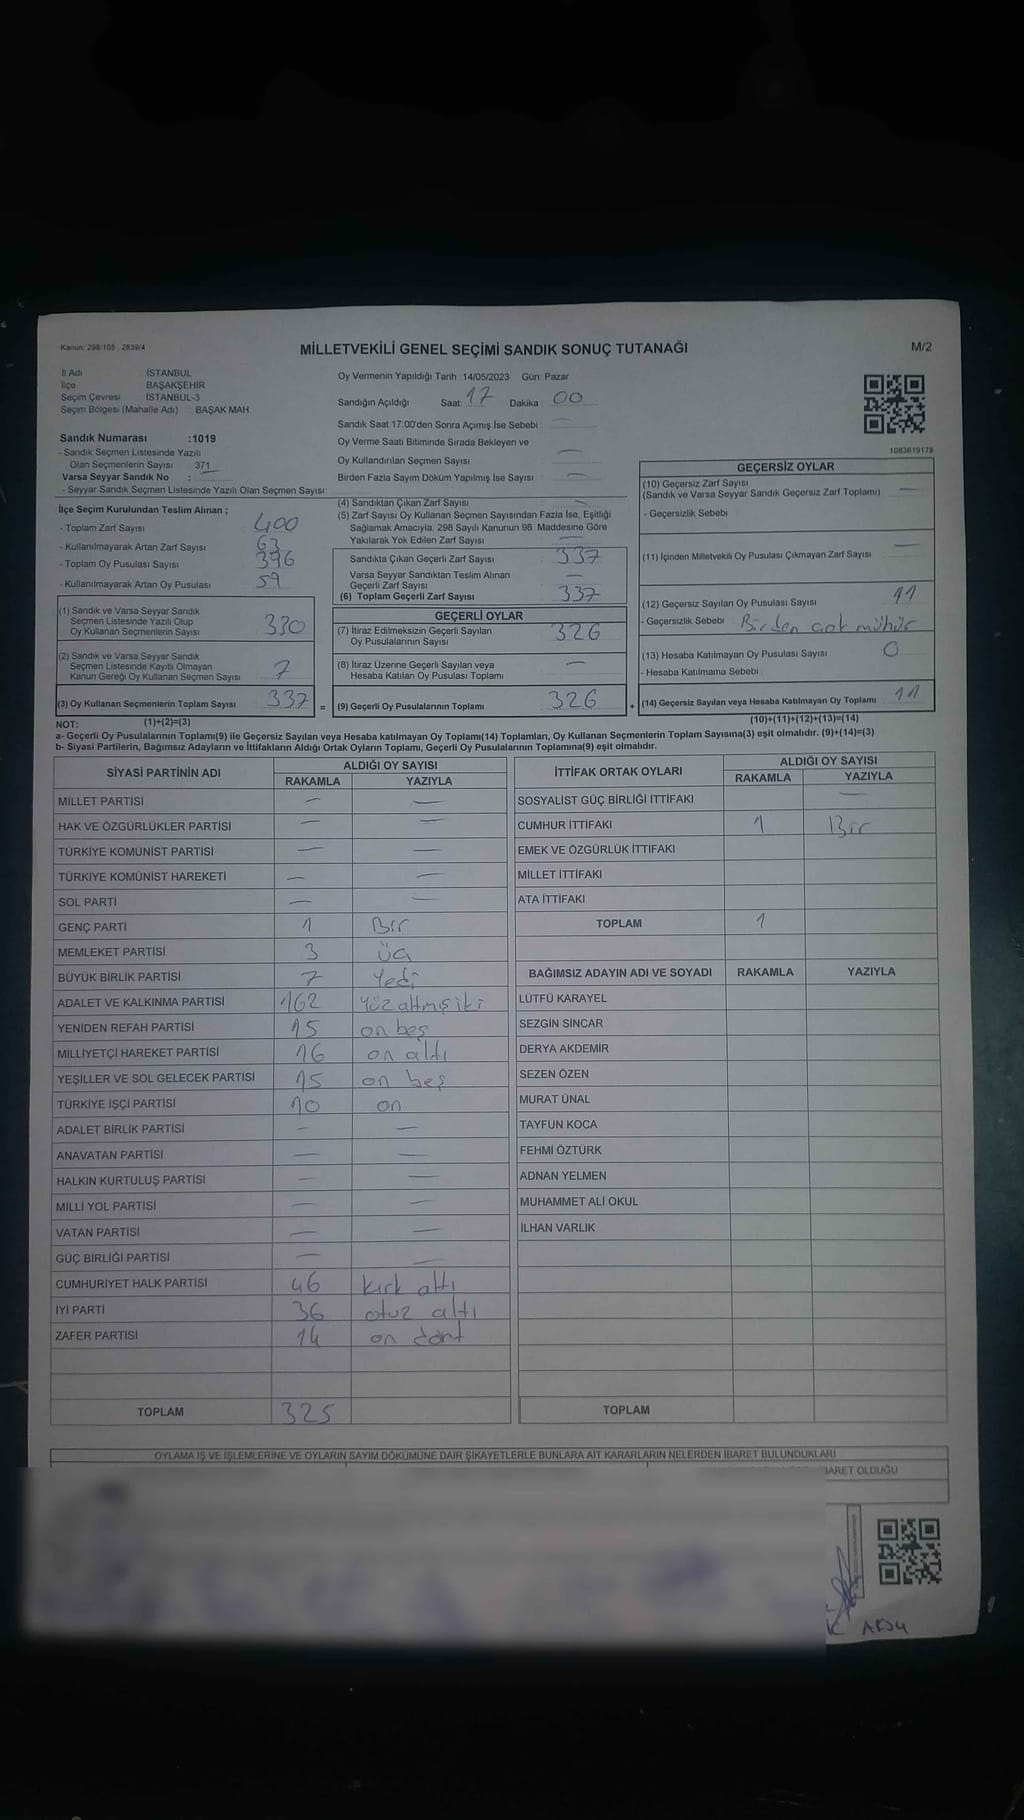 Kanun: 298/105 2839/4
MİLLETVEKİLİ GENEL SEÇİMİ SANDIK SONUÇ TUTANAĞI
M/2
İl Adı İSTANBUL
İlçe BAŞAKŞEHİR
Seçim Çevresi İSTANBUL-3
Seçim Bölgesi (Mahalle Adı) : BAŞAK MAH
Sandık Numarası :1019
- Sandık Seçmen Listesinde Yazılı
Olan Seçmenlerin Sayısı 371
Varsa Seyyar Sandık No :
- Seyyar Sandık Seçmen Listesinde Yazılı Olan Seçmen Sayısı:
Oy Vermenin Yapıldığı Tarih :14/05/2023 Gün: Pazar
Sandığın Açıldığı Saat: 17 Dakika : 00
Sandık Saat 17:00'den Sonra Açımış İse Sebebi : —
Oy Verme Saati Bitiminde Sırada Bekleyen ve
Oy Kullandırılan Seçmen Sayısı : —
Birden Fazla Sayım Döküm Yapılmış İse Sayısı : —
1083619178
İlçe Seçim Kurulundan Teslim Alınan ;
- Toplam Zarf Sayısı 400
- Kullanılmayarak Artan Zarf Sayısı 63
- Toplam Oy Pusulası Sayısı 396
- Kullanılmayarak Artan Oy Pusulası 59
(1) Sandık ve Varsa Seyyar Sandık
Seçmen Listesinde Yazılı Olup
Oy Kullanan Seçmenlerin Sayısı 330
(2) Sandık ve Varsa Seyyar Sandık
Seçmen Listesinde Kayıtlı Olmayan
Kanun Gereği Oy Kullanan Seçmen Sayısı 7
(3) Oy Kullanan Seçmenlerin Toplam Sayısı 337 =
(4) Sandıktan Çıkan Zarf Sayısı —
(5) Zarf Sayısı Oy Kullanan Seçmen Sayısından Fazla İse, Eşitliği
Sağlamak Amacıyla, 298 Sayılı Kanunun 98. Maddesine Göre
Yakılarak Yok Edilen Zarf Sayısı —
Sandıkta Çıkan Geçerli Zarf Sayısı 337
Varsa Seyyar Sandıktan Teslim Alınan
Geçerli Zarf Sayısı —
(6) Toplam Geçerli Zarf Sayısı 337
GEÇERLİ OYLAR
(7) İtiraz Edilmeksizin Geçerli Sayılan
Oy Pusulalarının Sayısı 326
(8) İtiraz Üzerine Geçerli Sayılan veya
Hesaba Katılan Oy Pusulası Toplamı —
(9) Geçerli Oy Pusulalarının Toplamı 326 +
GEÇERSİZ OYLAR
(10) Geçersiz Zarf Sayısı
(Sandık ve Varsa Seyyar Sandık Geçersiz Zarf Toplamı) —
- Geçersizlik Sebebi
(11) İçinden Milletvekili Oy Pusulası Çıkmayan Zarf Sayısı —
(12) Geçersiz Sayılan Oy Pusulası Sayısı 11
- Geçersizlik Sebebi : Birden çok mühür
(13) Hesaba Katılmayan Oy Pusulası Sayısı 0
- Hesaba Katılmama Sebebi :
(14) Geçersiz Sayılan veya Hesaba Katılmayan Oy Toplamı 11
NOT: (1)+(2)=(3) (10)+(11)+(12)+(13)=(14)
a- Geçerli Oy Pusulalarının Toplamı(9) ile Geçersiz Sayılan veya Hesaba katılmayan Oy Toplamı(14) Toplamları, Oy Kullanan Seçmenlerin Toplam Sayısına(3) eşit olmalıdır. (9)+(14)=(3)
b- Siyasi Partilerin, Bağımsız Adayların ve İttifakların Aldığı Ortak Oyların Toplamı, Geçerli Oy Pusulalarının Toplamına(9) eşit olmalıdır.
SİYASİ PARTİNİN ADI ALDIĞI OY SAYISI
RAKAMLA YAZIYLA
MİLLET PARTİSİ — —
HAK VE ÖZGÜRLÜKLER PARTİSİ — —
TÜRKİYE KOMÜNİST PARTİSİ — —
TÜRKİYE KOMÜNİST HAREKETİ — —
SOL PARTİ — —
GENÇ PARTİ 1 Bir
MEMLEKET PARTİSİ 3 üç
BÜYÜK BİRLİK PARTİSİ 7 Yedi
ADALET VE KALKINMA PARTİSİ 162 Yüz altmış iki
YENİDEN REFAH PARTİSİ 15 on beş
MİLLİYETÇİ HAREKET PARTİSİ 16 on altı
YEŞİLLER VE SOL GELECEK PARTİSİ 15 on beş
TÜRKİYE İŞÇİ PARTİSİ 10 on
ADALET BİRLİK PARTİSİ — —
ANAVATAN PARTİSİ — —
HALKIN KURTULUŞ PARTİSİ — —
MİLLİ YOL PARTİSİ — —
VATAN PARTİSİ — —
GÜÇ BİRLİĞİ PARTİSİ — —
CUMHURİYET HALK PARTİSİ 46 kırk altı
İYİ PARTİ 36 otuz altı
ZAFER PARTİSİ 14 on dört
TOPLAM 325
İTTİFAK ORTAK OYLARI ALDIĞI OY SAYISI
RAKAMLA YAZIYLA
SOSYALİST GÜÇ BİRLİĞİ İTTİFAKI —
CUMHUR İTTİFAKI 1 Bir
EMEK VE ÖZGÜRLÜK İTTİFAKI
MİLLET İTTİFAKI
ATA İTTİFAKI
TOPLAM 1
BAĞIMSIZ ADAYIN ADI VE SOYADI RAKAMLA YAZIYLA
LÜTFÜ KARAYEL
SEZGİN SİNCAR
DERYA AKDEMİR
SEZEN ÖZEN
MURAT ÜNAL
TAYFUN KOCA
FEHMİ ÖZTÜRK
ADNAN YELMEN
MUHAMMET ALİ OKUL
İLHAN VARLIK
TOPLAM
OYLAMA İŞ VE İŞLEMLERİNE VE OYLARIN SAYIM DÖKÜMÜNE DAİR ŞİKAYETLERLE BUNLARA AİT KARARLARIN NELERDEN İBARET BULUNDUKLARI
BARET OLDUĞU